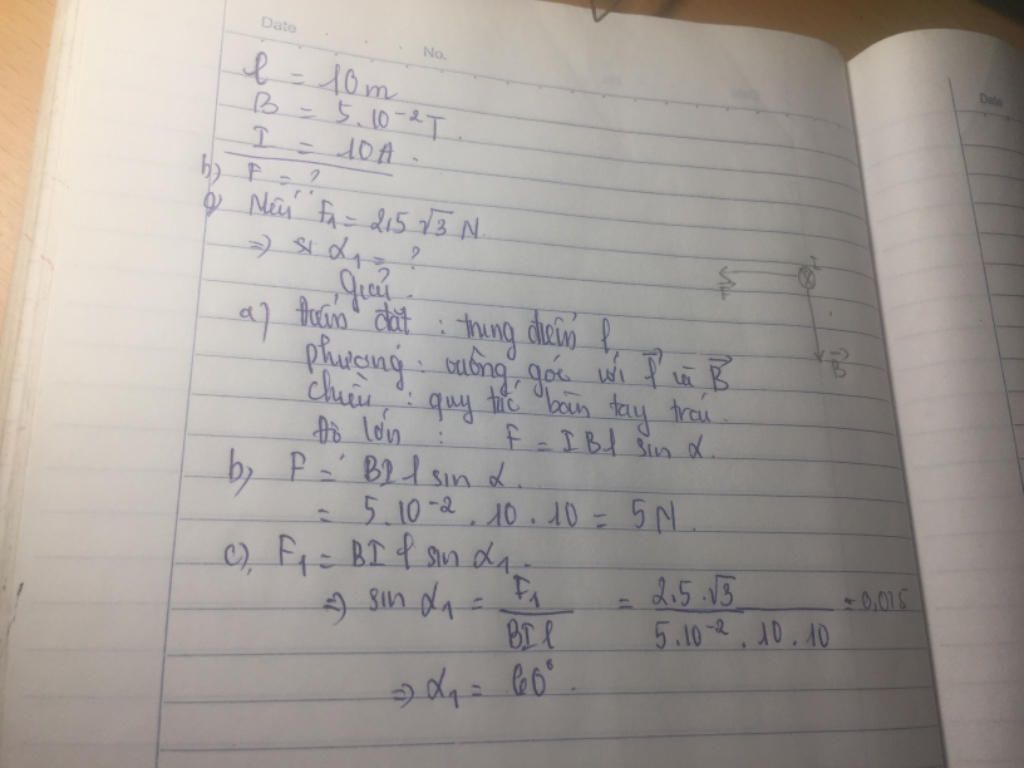 Date
No.
Date
l = 10m
B = 5.10⁻² T.
I = 10A.
b) F = ?
c) Nếu F₁ = 2,5 √3 N
=> α₁ = ?
Giải.
I
F
B
a) Điểm đặt : trung điểm l
phương : vuông góc với l và B
chiều : quy tắc bàn tay trái.
Độ lớn : F = IBl sin α.
b) F = BIl sin α.
= 5.10⁻² . 10 . 10 = 5N.
c), F₁ = BIl sin α₁.
=> sin α₁ = F₁ / BIl = 2.5.√3 / 5.10⁻² . 10 . 10
=> α₁ = 60°.